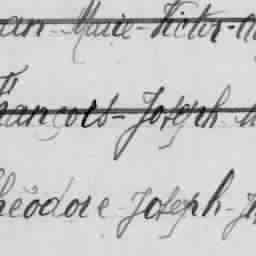 an-Marie-Victor-
François-Joseph
héodore-Joseph-J